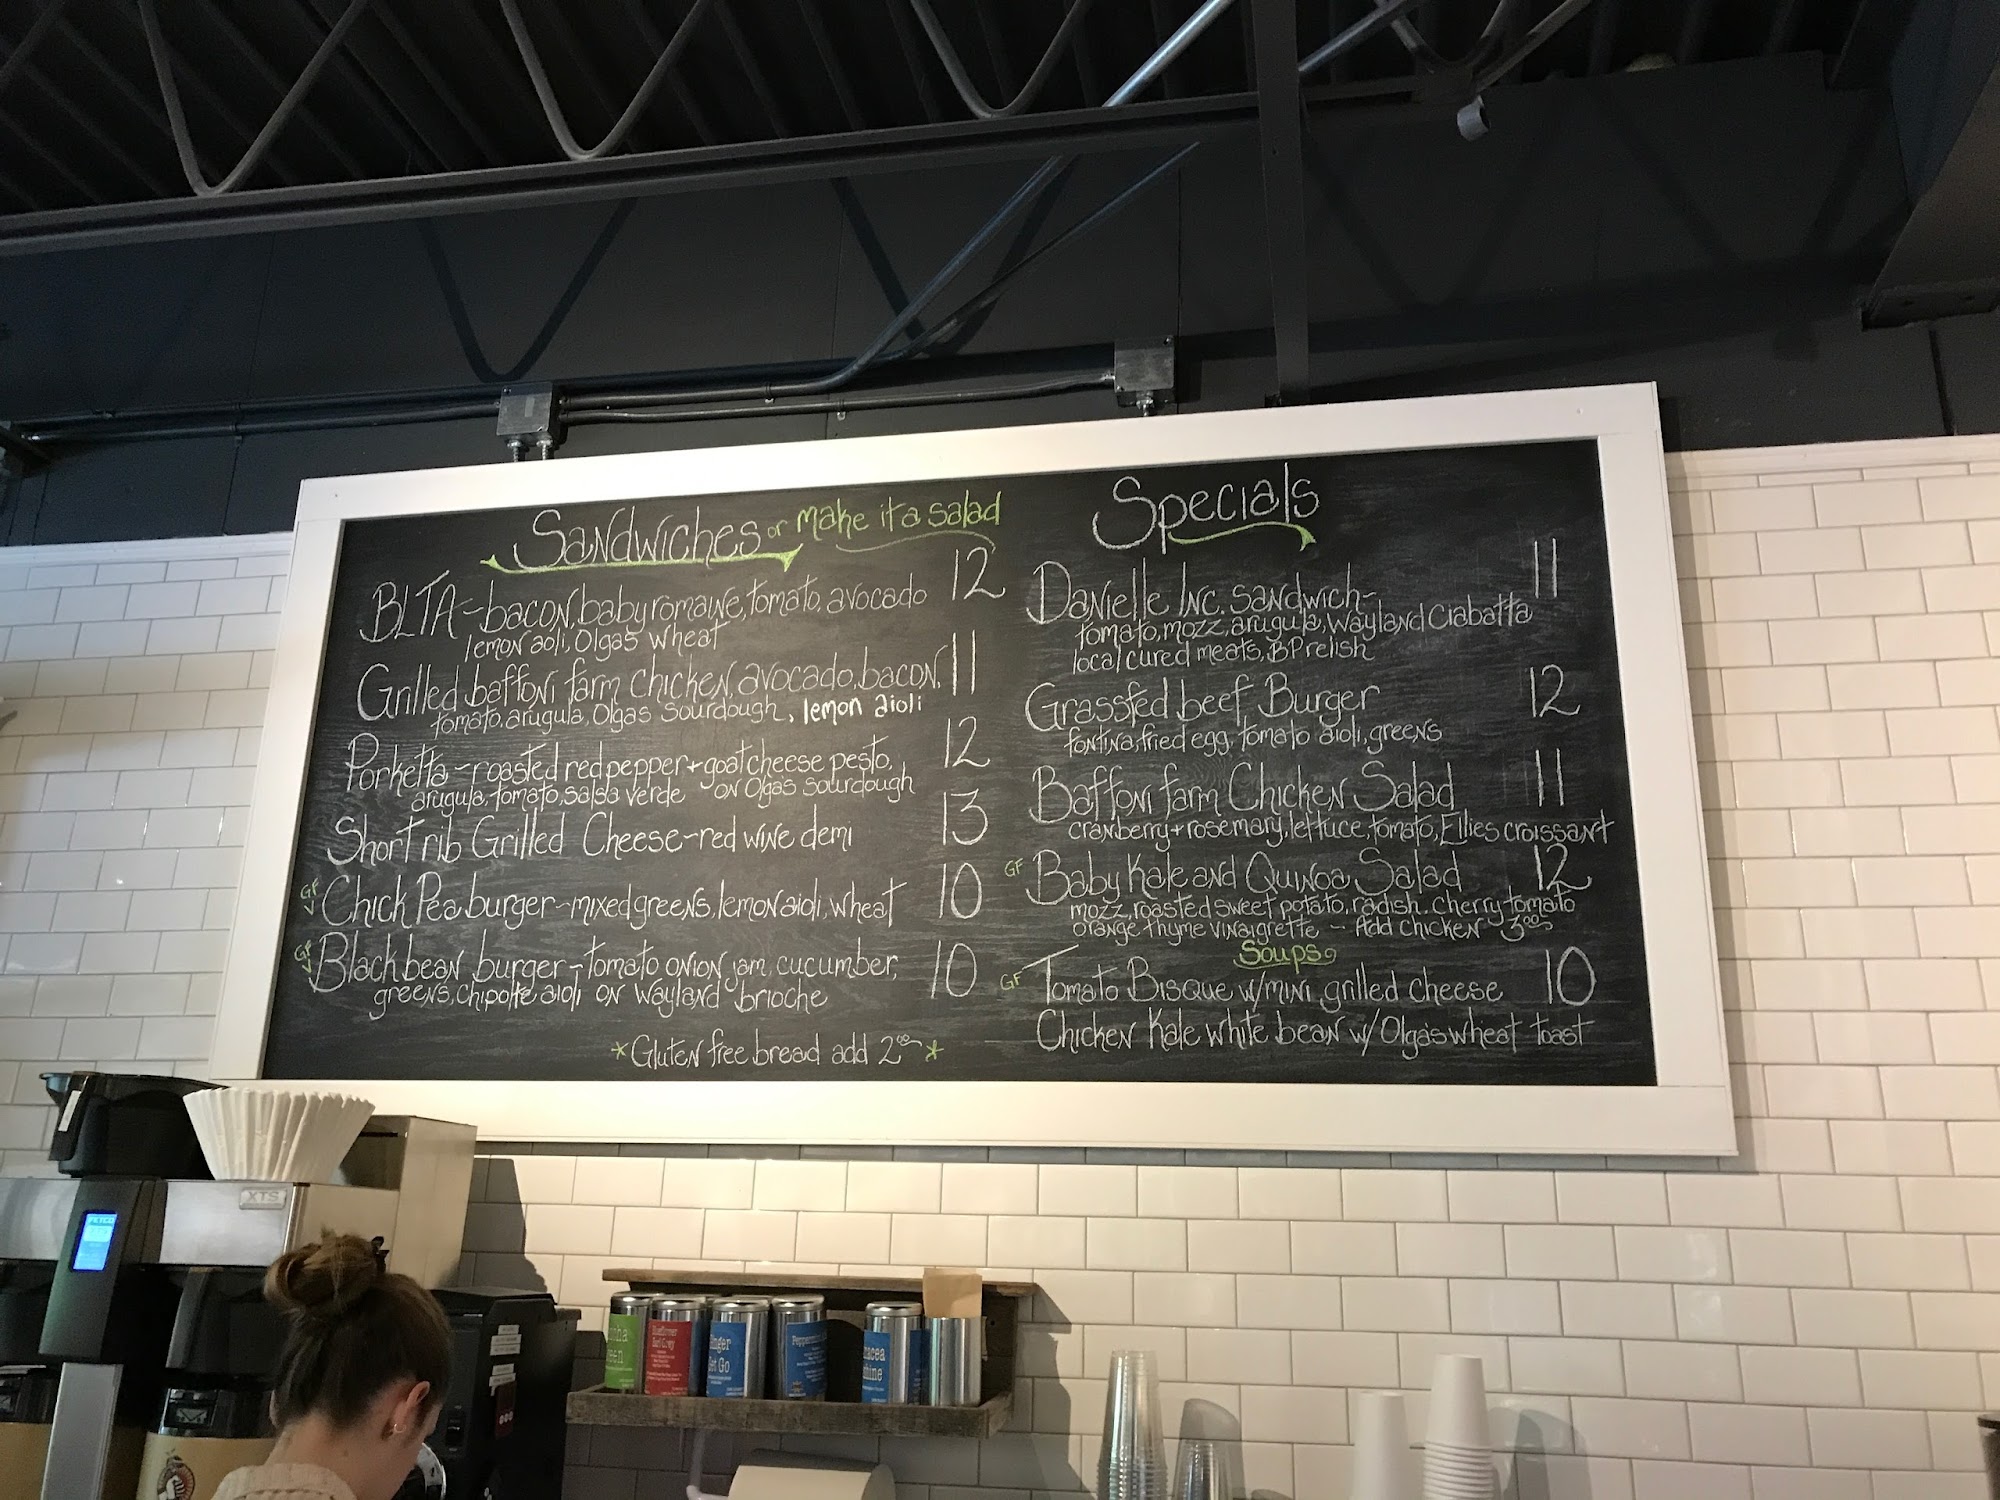 Sandwiches or make it a salad
BLTA - bacon, baby romaine, tomato, avocado 12
lemon aoli, Olgas wheat
Grilled baffoni farm chicken, avocado, bacon, 11
tomato, arugula, Olgas Sourdough, lemon aioli
Porketta - roasted red pepper + goat cheese pesto, 12
arugula, tomato, salsa verde on Olgas Sourdough
Short rib Grilled Cheese - red wine demi 13
GF V Chick Pea burger - mixed greens, lemon aioli, wheat 10
GF V Black bean burger - tomato onion jam, cucumber, 10
greens, chipotle aioli on Wayland brioche
*Gluten free bread add 2.00*
Specials
Danielle Inc. Sandwich - 11
tomato, mozz, arugula, Wayland Ciabatta
local cured meats, BP relish
Grassfed beef Burger 12
fontina, fried egg, tomato aioli, greens
Baffoni farm Chicken Salad 11
cranberry + rosemary, lettuce, tomato, Ellies croissant
GF Baby Kale and Quinoa Salad 12
mozz, roasted sweet potato, radish, cherry tomato
orange thyme vinaigrette - Add chicken 3.00
Soups
GF Tomato Bisque w/ mini grilled cheese 10
Chicken Kale white bean w/ Olgas wheat toast
XTS
FETCO
Earl Grey
Peppermint